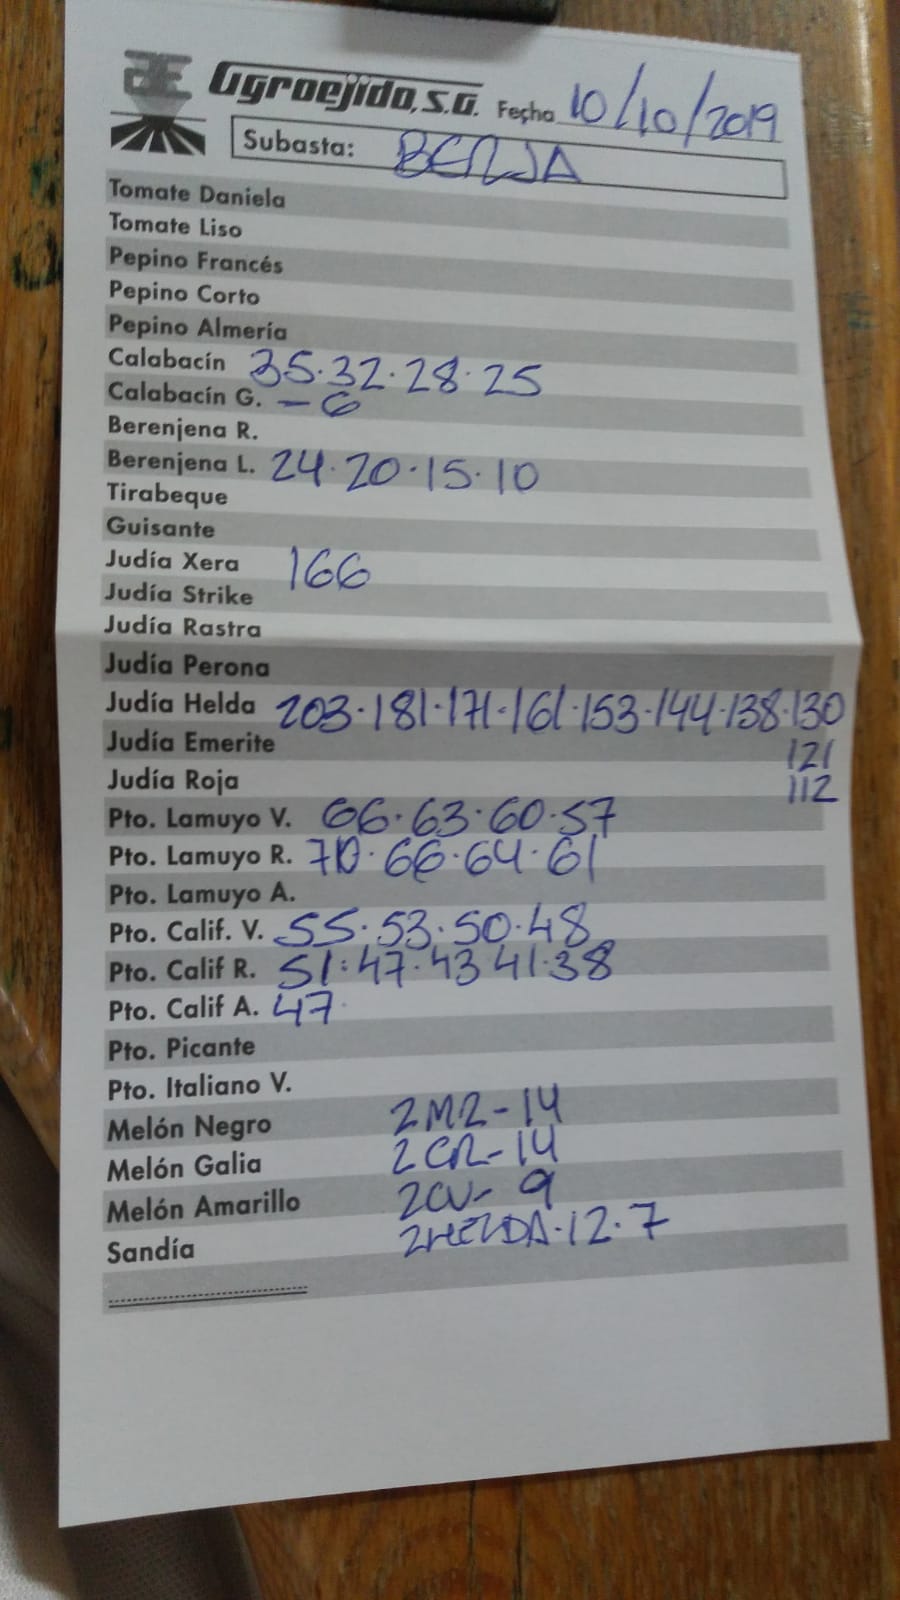 Agroejido, S.A. Fecha 10/10/2019
Subasta: BERJA
Tomate Daniela
Tomate Liso
Pepino Francés
Pepino Corto
Pepino Almería
Calabacín 35.32.28.25
Calabacín G. - 6
Berenjena R.
Berenjena L. 24.20.15.10
Tirabeque
Guisante
Judía Xera 166
Judía Strike
Judía Rastra
Judía Perona
Judía Helda 203.181.171.161.153.144.138.130
Judía Emerite 121
Judía Roja 112
Pto. Lamuyo V. 66.63.60.57
Pto. Lamuyo R. 70.66.64.61
Pto. Lamuyo A.
Pto. Calif. V. 55.53.50.48
Pto. Calif R. 51.47.43 41.38
Pto. Calif A. 47.
Pto. Picante
Pto. Italiano V.
Melón Negro 2MR-14
Melón Galia 2CR-14
Melón Amarillo 2CV- 9
Sandía 2HELDA.12.7